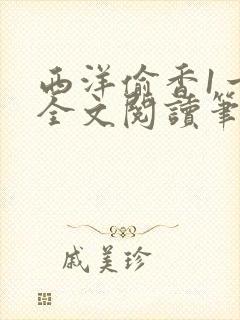 西洋偷香1一
全文閱讀筆
戚美珍